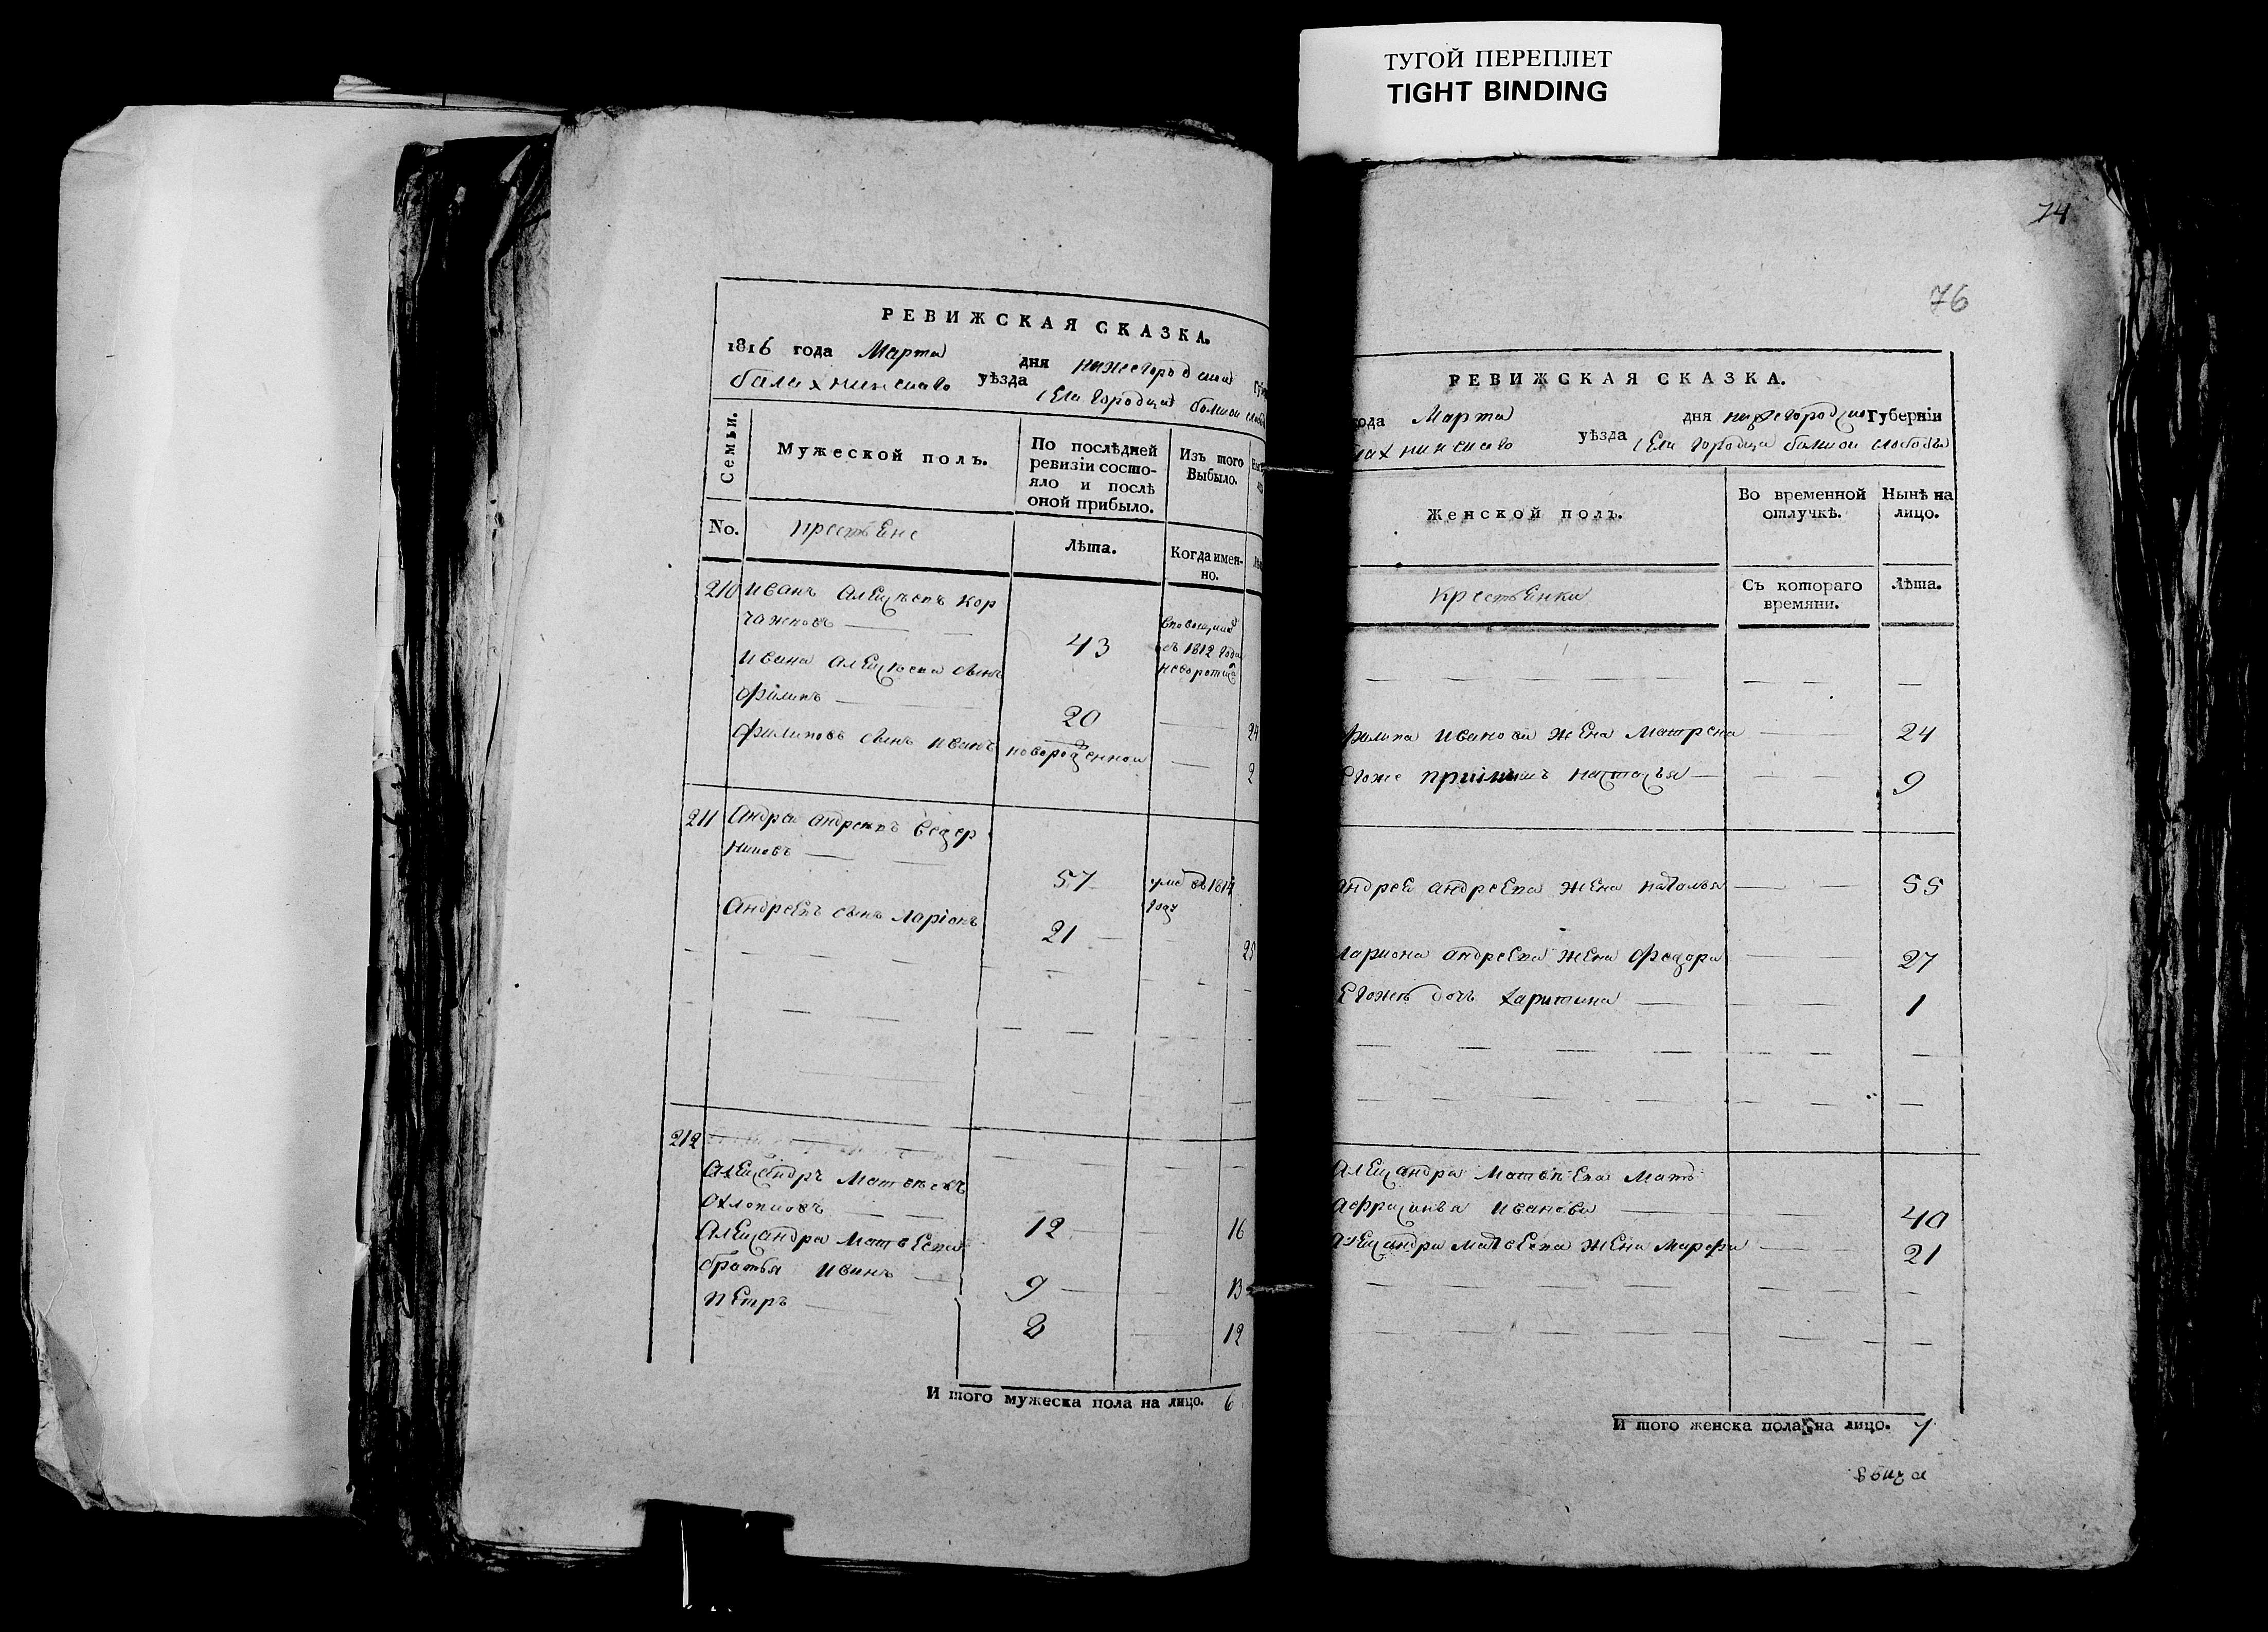 ТУГОЙ ПЕРЕПЛЕТ
TIGHT BINDING
РЕВИЖСКАЯ СКАЗКА.
1816 года Марта дня нижегородской
балахнинскаго уѣзда села городца болшой
Семьи.
Мужеской полъ.
По послѣдней ревизіи состояло и послѣ оной прибыло.
Изъ того Выбыло.
No.
крестьяне
Лѣта.
Когда именно.
210 иванъ алексѣевъ кор
чажновъ
43
съ 1812 года
ивана алексѣева сынъ
филипъ
20
24
филиповъ сынъ иванъ новорожденной
2
211 андрей андреевъ
никовъ
57 уме въ 1814
году
андреевъ сынъ ларіонъ
21
25
212
александръ матвѣевъ
охлопковъ
12
16
александра матвѣева
братья иванъ
9
13
петръ
8
12
И того мужеска пола на лицо. 6
74
76
РЕВИЖСКАЯ СКАЗКА.
года Марта дня нижегородской Губерніи
уѣзда села городца болшой слободы
Женской полъ.
Во временной отлучкѣ.
Нынѣ на лицо.
крестьянки
Съ котораго времяни.
Лѣта.
филипа иванова жена матрена 24
егоже приимышъ настасья 9
андрея андреева жена наталья 55
лариона андреева жена федора 27
егоже дочь харитина 1
александра матвѣева мать
афросинья иванова 40
александра матвеева жена марфа 21
И того женска пола на лицо. 7